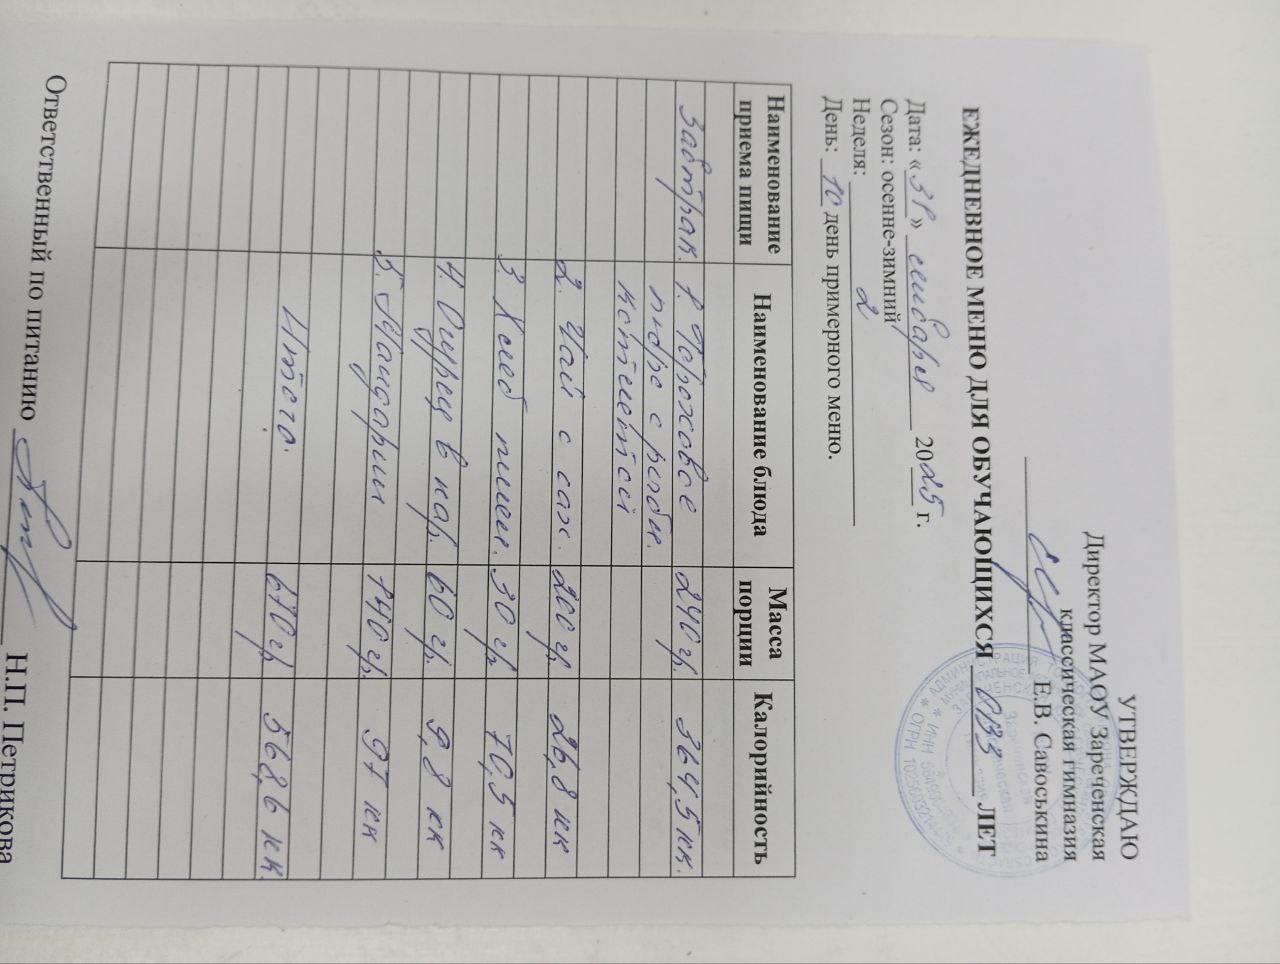 УТВЕРЖДАЮ
Директор МАОУ Зареченская
классическая гимназия
Е.В. Савоськина
ЕЖЕДНЕВНОЕ МЕНЮ ДЛЯ ОБУЧАЮЩИХСЯ ОВЗ ЛЕТ
Дата: «31» января 2025 г.
Сезон: осенне-зимний
Неделя: 2
День: 10 день примерного меню.
Наименование приема пищи Наименование блюда Масса порции Калорийность
Завтрак. 1. Гороховое 240 гр. 364,5 кк.
пюре с рыбн.
котлетой
2. Чай с сах. 200 гр. 26,8 кк
3. Хлеб пшен. 30 гр. 70,5 кк
4. Огурец в нар. 60 гр. 9,8 кк
5. Мандарин 140 гр. 97 кк
Итого. 670 гр. 568,6 кк.
Ответственный по питанию Н.П. Петрикова